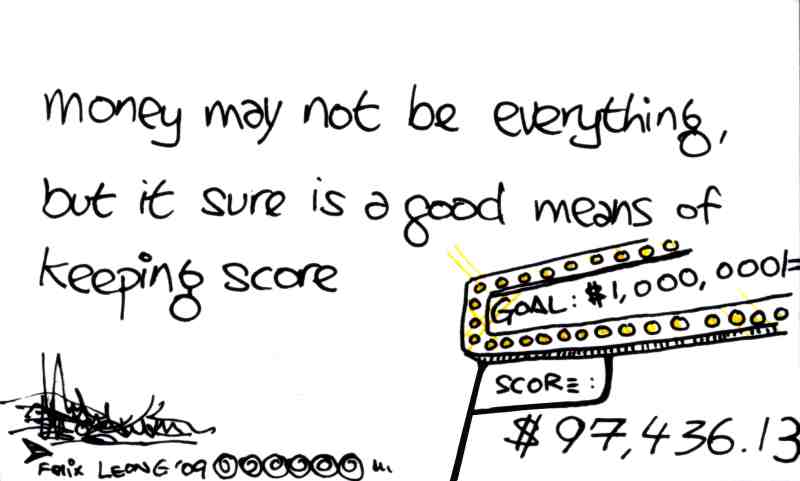 money may not be everything,
but it sure is a good means of
keeping score
GOAL: $1,000,000/=
SCORE:
$97,436.13
FELIX LEONG '09